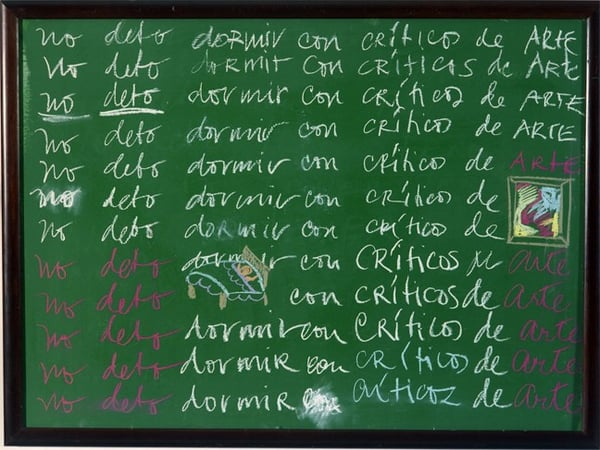 no debo doRMiR con CRíticos de ARTE
No debo doRMiR con CRíTiCOS de ARTE
no debo dormir con críticos de ARTE
no debo dormir con críticos de ARTE
no debo dormir con críticos de ARTE
no debo dormir con críticos de
no debo dormir con críticos de
no debo dormir con CRíticos de arte
no debo con CRíTiCOS de arte
no debo dormir con CRíticos de arte
no debo dormiR con CRíTiCOS de arte
no debo dormiR con CRíTiCOZ de arte